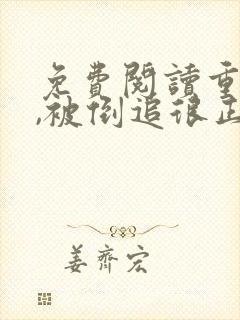 免費閱讀重
,被倒追很正
姜齊宏